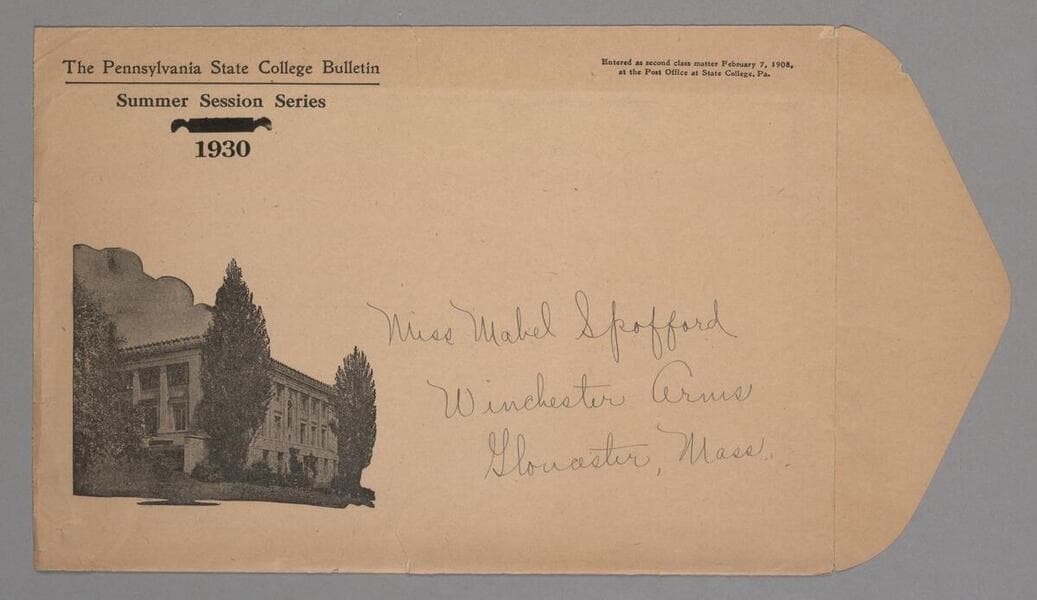 The Pennsylvania State College Bulletin
Summer Session Series
1930
Entered as second class matter February 7, 1908,
at the Post Office at State College, Pa.
Miss Mabel Spofford
Winchester Arms
Gloucester, Mass.